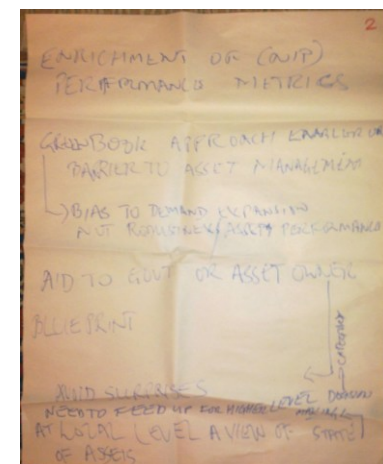 2
ENRICHMENT OF (NIP)
PERFORMANCE METRICS
GREENBOOK APPROACH ENABLER OR
BARRIER TO ASSET MANAGEMENT
BIAS TO DEMAND EXPANSION
NOT ROBUSTNESS/ASSET PERFORMANCE
AID TO GOVT OR ASSET OWNER
BLUEPRINT
CATEGORY
AVOID SURPRISES
NEED TO FEED UP FOR HIGHER LEVEL DOMAIN
AT LOCAL LEVEL A VIEW OF STATE
OF ASSETS